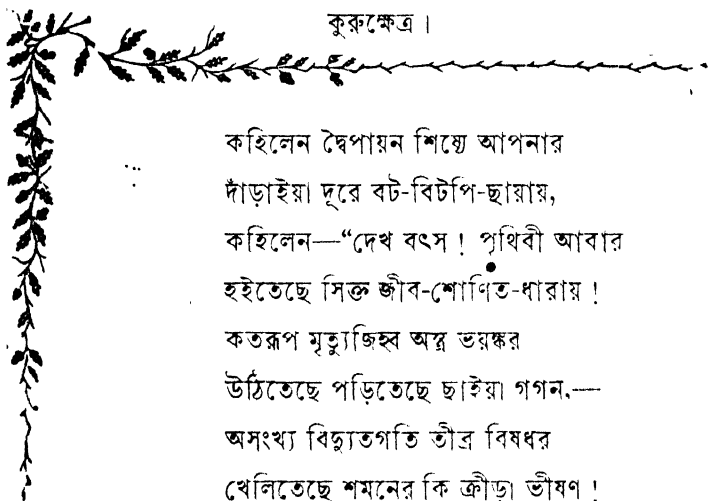 কুরুক্ষেত্র।
কহিলেন দ্বৈপায়ন শিষ্যে আপনার
দাঁড়াইয়া দূরে বট-বিটপি-ছায়ায়,
কহিলেন—“দেখ বৎস! পৃথিবী আবার
হইতেছে সিক্ত জীব-শোণিত-ধারায়!
কতরূপ মৃত্যুজিহ্ব অস্ত্র ভয়ঙ্কর
উঠিতেছে পড়িতেছে ছাইয়া গগন,—
অসংখ্য বিদ্যুতগতি তীব্র বিষধর
খেলিতেছে শমনের কি ক্রীড়া ভীষণ!